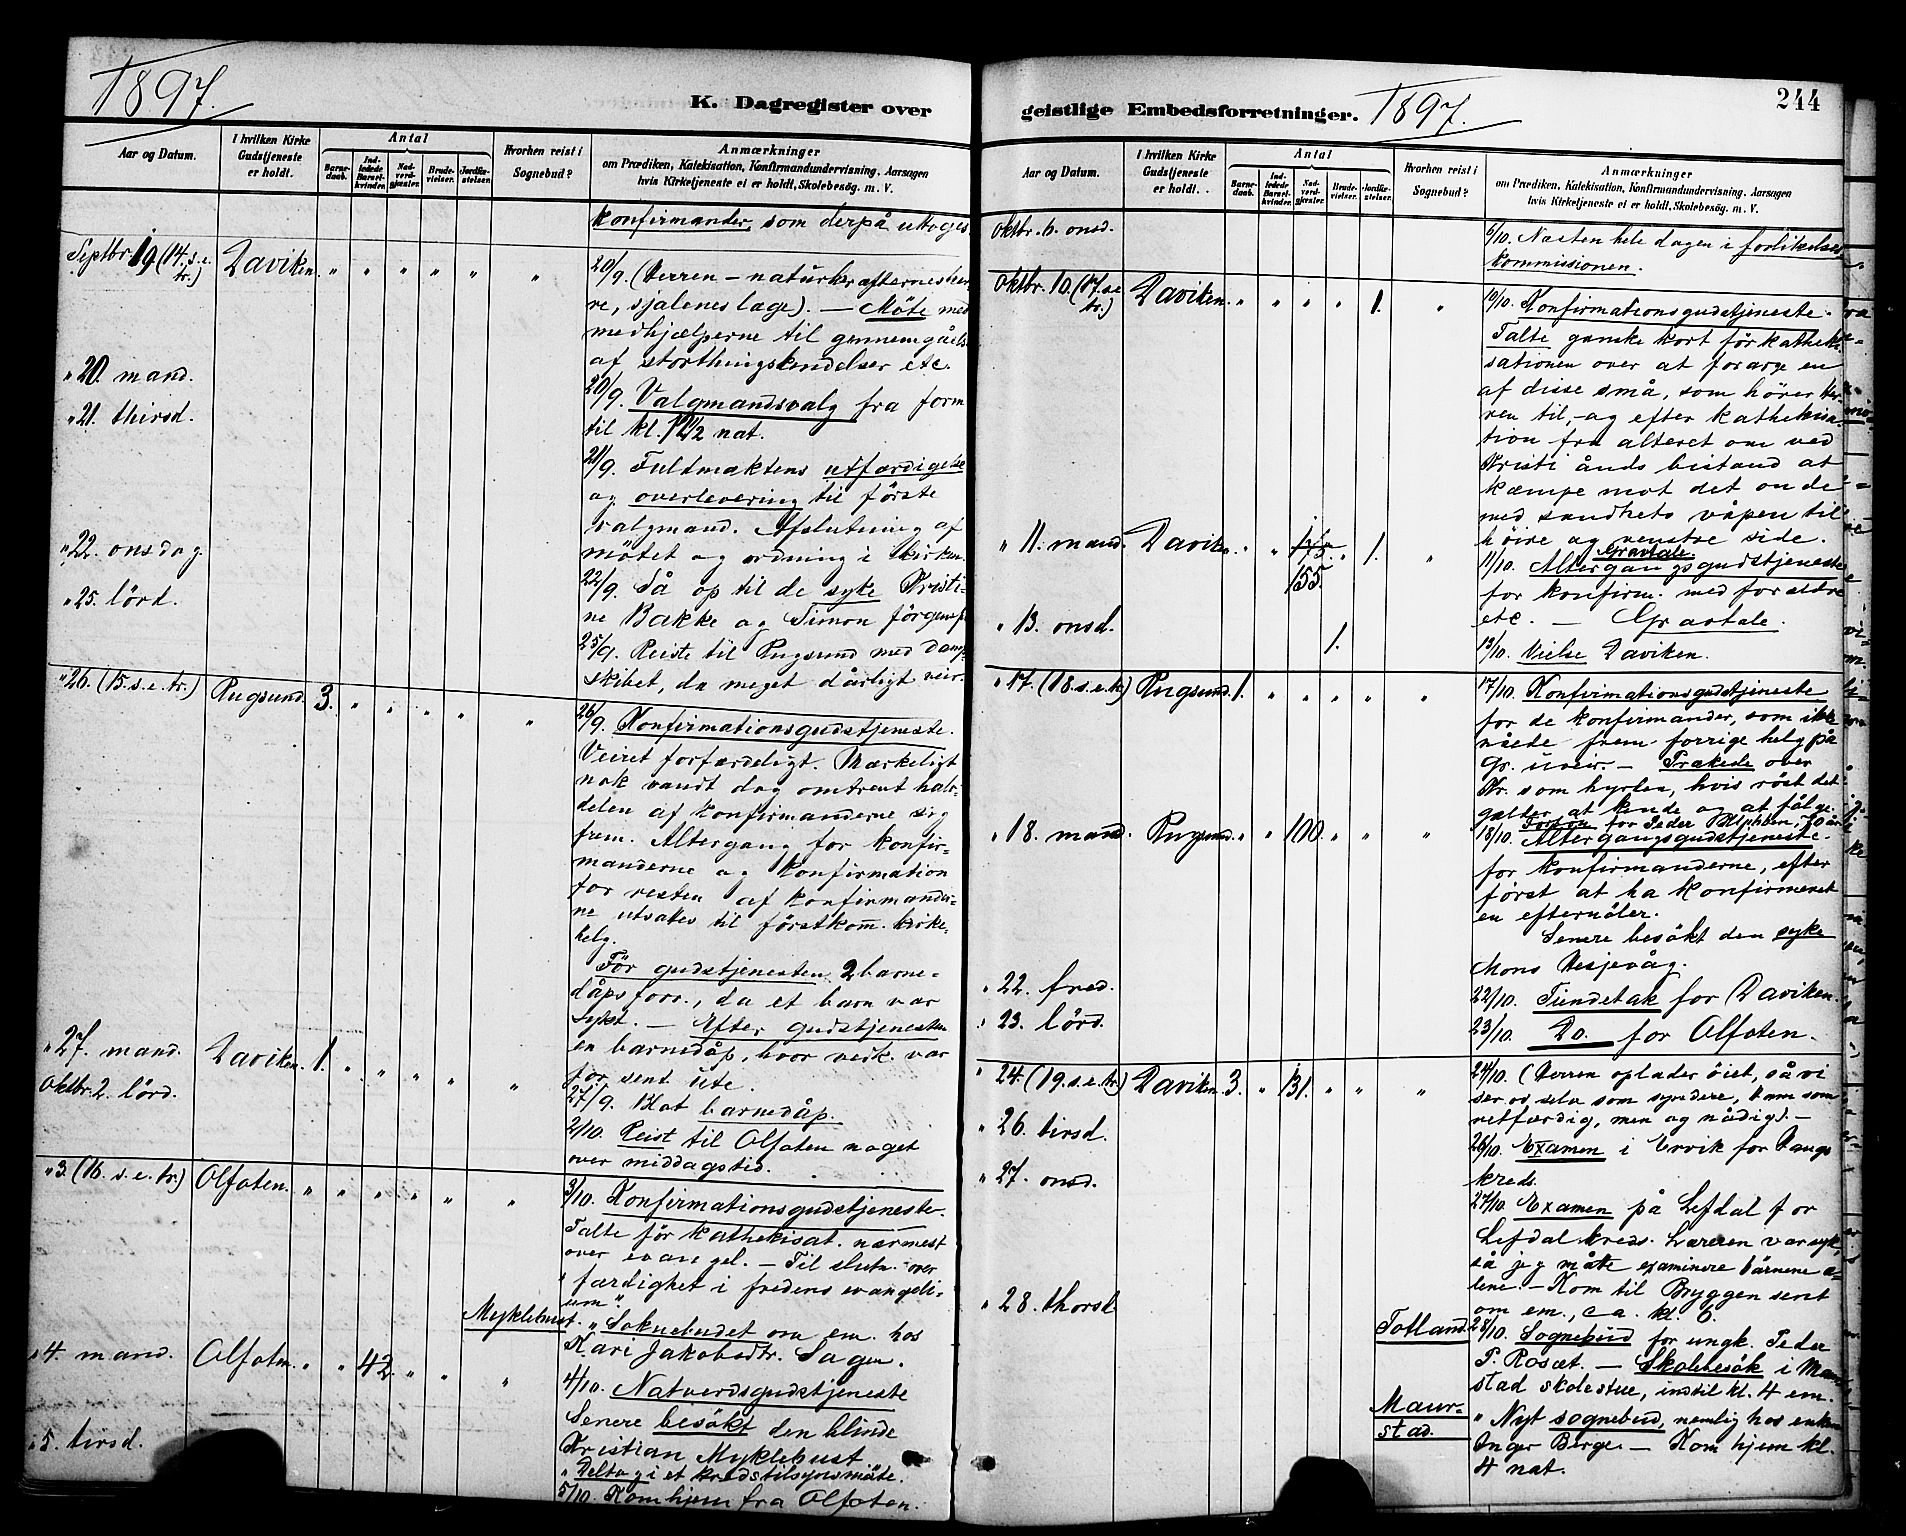 1897.
K. Dagregister over
Aar og Datum.
I hvilken Kirke Gudstjeneste er holdt.
Antal
Barnedaab.
Indledede Barselkvinder.
Nadverdgjester.
Brudevielser.
Jordfæstelser.
Hvorhen reist i Sognebud?
Anmærkninger
om Prædiken, Katekisation, Konfirmandundervisning, Aarsagen
hvis Kirketjeneste ei er holdt, Skolebesøg. m. V.
konfirmander, som derpå uttoges.
Septbr. 19 (14. s. e. tr.) Daviken. " " " " " "
20/9. (Herren – naturkræfternes her-
re, sjælenes læge). – Möte med
medhjælperne til gennemgåelse
af storthingskendelser etc.
" 20. mand.
20/9. Valgmandsvalg fra form
" 21. thirsd.
til kl. 12 1/2 nat.
21/9. Fuldmaktens utfærdigelse
og overlevering til förste
valgmand. Afslutning af
" 22. onsdag.
mötet og ordning i kirken.
22/9. Så op til de syke Kristi-
" 25. lörd.
ne Bakke og Simon Jörgens
25/9. Reiste til Rugsund med damp-
skibet, da meget dårligt veir.
" 26. (15. s. e. tr.) Rugsund. 3. " " " " "
26/9. Konfirmationsgudstjeneste.
Veiret forfærdeligt. Mærkeligt
nok vandt dog omtrent halv-
delen af konfirmanderne sig
frem. Altergang for konfir-
manderne og konfirmation
for resten af konfirmander-
ne utsættes til förstkom. kirke-
helg.
För gudstjenesten 2 barne-
dåpsforr., da et barn var
sykt. – Efter gudstjenesten
en barnedåp, hvor verk. var
for sent ute.
" 27. mand. Daviken. 1. " " " " "
27/9. Blot barnedåp.
Oktbr. 2. lörd.
2/10. Reist til Ålfoten noget
over middagstid.
" 3. (16. s. e. tr.) Ålfoten. " " " " " "
3/10. Konfirmationsgudstjeneste.
Talte för kathekisat. nærmest
over evangel. – Til slutn. over
"færdighet i fredens evangeli-
um".
Myklebust.
" Soknebudet om em. hos
Kari Jakobsdtr. Sagen.
" 4. mand. Ålfoten. " " 42. " " "
4/10. Natverdsgudstjeneste
Senere besökt den blinde
Kristian Myklebust
" Deltog i et kredstilsynsmöte.
" 5. tirsd.
5/10. Kom hjem fra Ålfoten.
geistlige Embedsforretninger.
1897.
244
Aar og Datum.
I hvilken Kirke Gudstjeneste er holdt.
Antal
Barnedaab.
Indledede Barselkvinder.
Nadverdgjester.
Brudevielser.
Jordfæstelser.
Hvorhen reist i Sognebud?
Anmærkninger
om Prædiken, Katekisation, Konfirmandundervisning, Aarsagen
hvis Kirketjeneste ei er holdt, Skolebesøg. m. V.
Oktbr. 6. onsd.
6/10. Næsten hele dagen i forlikelses
kommissionen.
Oktbr. 10. (17. s. e. tr.) Daviken. " " " " 1. "
10/10. Konfirmationsgudstjeneste.
Talte ganske kort för katheki-
sationen over at forarge en
af disse små, som hörer Her-
ren til, – og efter kathekisa-
tion fra alteret om ved
Kristi ånds bistand at
kæmpe mot det onde
med sandhets våpen til
höire og venstre side.
" 11. mand. Daviken. " " 145. 155. " 1. "
Gravtale.
11/10. Altergangsgudstjeneste
for konfirm. med forældre
etc. – Gravtale.
" 13. onsd. 1.
13/10. Vielse Daviken.
" 17. (18. s. e. tr.) Rugsund. 1. " " " " "
17/10. Konfirmationsgudstjeneste
for de konfirmander, som ikke
nåede frem forrige helg på
gr. uveir. – Prækede over
Kr. som hyrden, hvis röst det
gælder at kende og at fölge.
" 18. mand. Rugsund. " " 100. " " "
for Peder 70 år
18/10. Altergangsgudstjeneste
for konfirmanderne, efter
först at ha konfirmeret
en efternöler.
Senere besökt den syke
Mons Hesjevåg.
" 22. fred.
22/10. Tiendetak for Daviken.
" 23. lörd.
23/10. Do. for Ålfoten.
" 24. (19. s. e. tr.) Daviken. 3. " 131. " " "
24/10. (Herren oplader öiet, så vi
ser os selv som syndere, ham som
retfærdig, men og nådig). –
" 26. tirsd.
26/10. Examen i Ervik for Vaags
kreds.
" 27. onsd.
27/10. Examen på Lefdal for
Lefdal kreds. Læreren var syk,
så jeg måtte examinere börnene a-
lene. – Kom til Bryggen sent
om em., ca. kl. 6.
" 28. thorsd.
Totland.
28/10. Sognebud for ungk. Peder
P. Rosæt. – Skolebesök i Maur-
stad skolestue, indtil kl. 4 em.
Maur-
stad.
" Nyt sognebud, nemlig hos enken
Inger Berge. – Kom hjem kl.
4 nat.